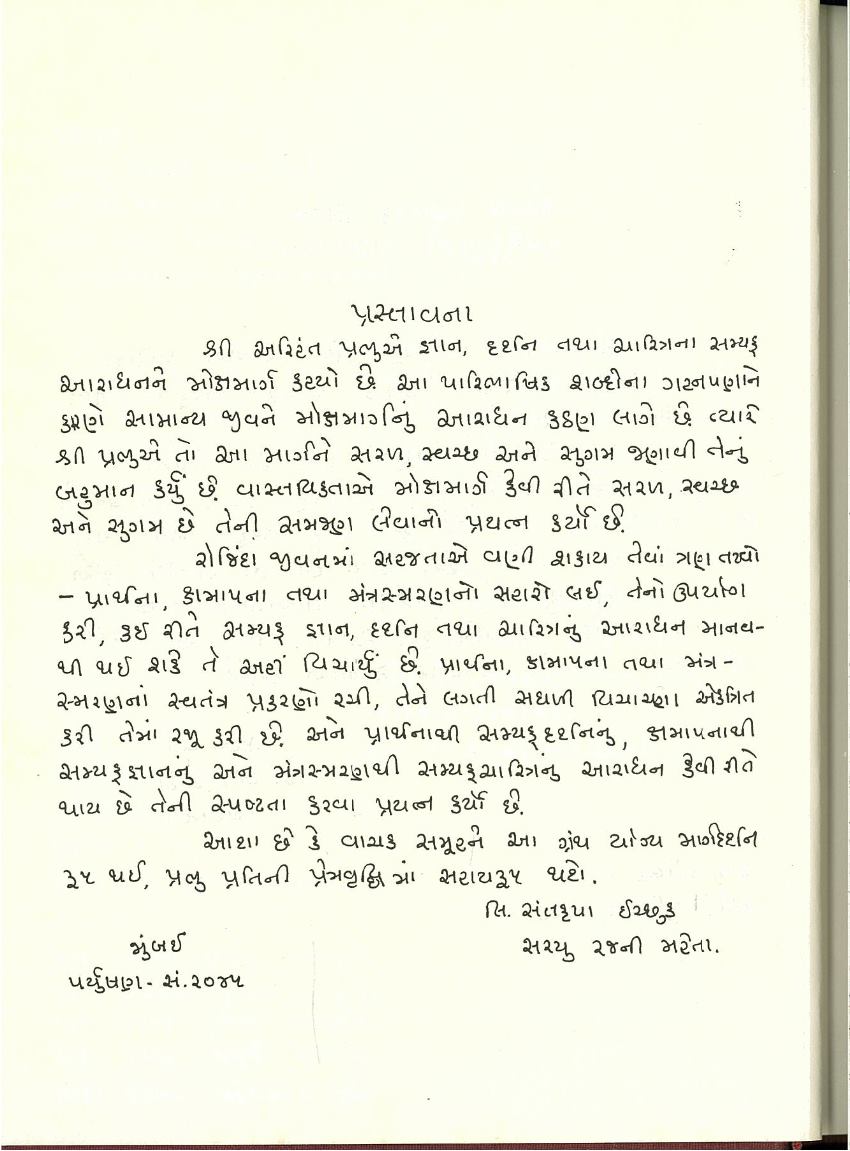 પ્રસ્તાવના
શ્રી અરિહંત પ્રભુએ જ્ઞાન, દર્શન તથા ચારિત્રના સમ્યક્
આરાધનને મોક્ષમાર્ગ કહ્યો છે. આ પારિભાષિક શબ્દોના ગહનપણાને
કારણે સામાન્ય જીવને મોક્ષમાર્ગનું આરાધન કઠણ લાગે છે. ત્યારે
શ્રી પ્રભુએ તો આ માર્ગને સરળ, સ્વચ્છ અને સુગમ જણાવી તેનું
બહુમાન કર્યું છે. વાસ્તવિકતાએ મોક્ષમાર્ગ કેવી રીતે સરળ, સ્વચ્છ
અને સુગમ છે તેની સમજણ લેવાનો પ્રયત્ન કર્યો છે.
રોજિંદા જીવનમાં સહજતાએ વણી શકાય તેવાં ત્રણ તત્ત્વો
– પ્રાર્થના, ક્ષમાપના તથા મંત્રસ્મરણનો સહારો લઈ, તેનો ઉપયોગ
કરી, કઈ રીતે સમ્યક્ જ્ઞાન, દર્શન તથા ચારિત્રનું આરાધન માનવ-
થી થઈ શકે તે અહીં વિચાર્યું છે. પ્રાર્થના, ક્ષમાપના તથા મંત્ર –
સ્મરણનાં સ્વતંત્ર પ્રકરણો રચી, તેને લગતી સઘળી વિચારણા એકત્રિત
કરી તેમાં રજૂ કરી છે. અને પ્રાર્થનાથી સમ્યક્ દર્શનનું, ક્ષમાપનાથી
સમ્યક્ જ્ઞાનનું અને મંત્રસ્મરણથી સમ્યક્ ચારિત્રનું આરાધન કેવી રીતે
થાય છે તેની સ્પષ્ટતા કરવા પ્રયત્ન કર્યો છે.
આશા છે કે વાચક સમૂહને આ ગ્રંથ યોગ્ય માર્ગદર્શન
રૂપ થઈ, પ્રભુ પ્રતિની પ્રેમવૃદ્ધિમાં સહાયરૂપ થશે.
લિ. સંતકૃપા ઈચ્છુક
મુંબઈ સરયુ રજની મહેતા.
પર્યુષણ - સં. ૨૦૪૫